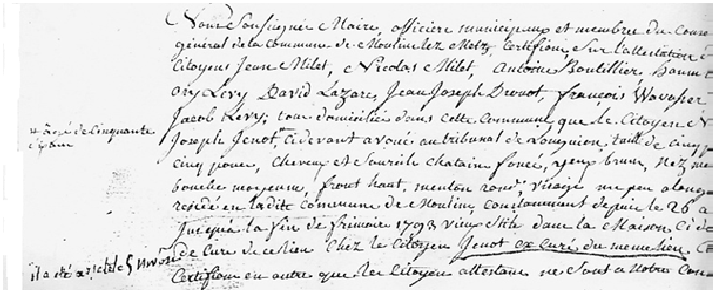 Nous Soussignés Maire, officiers municipaux et membres du Conse
général de la Commune de Moulin lez Metz Certifions, Sur l'attestation
Citoyens Jean Milet, Nicolas Milet, Antoine Boutillier,
Ory Levy David Lazare, Jean Joseph Drouot, françois
Jacob Levy; tous domiciliés dans cette Commune que le Citoyen
Joseph Jenot, cidevant avoué au tribunal de Longuion, taille de cinq
cinq pouce, cheveux et Sourcils chatain foncé, yeux brun, Nez
bouche moyenne, front haut, menton rond, visage un peu alongé
réside en ladite Commune de Moulin, constamment depuis le 26
Jusqu'à la fin de frimaire 1793 vieux Stile dans la Maison Ci de
de Cure de ce lien Chez le Citoyen Jenot ex Curé du meme lieu.
Certifions en outre que les Citoyens attestans ne Sont a Notre Con
agé de Cinquante
il a été